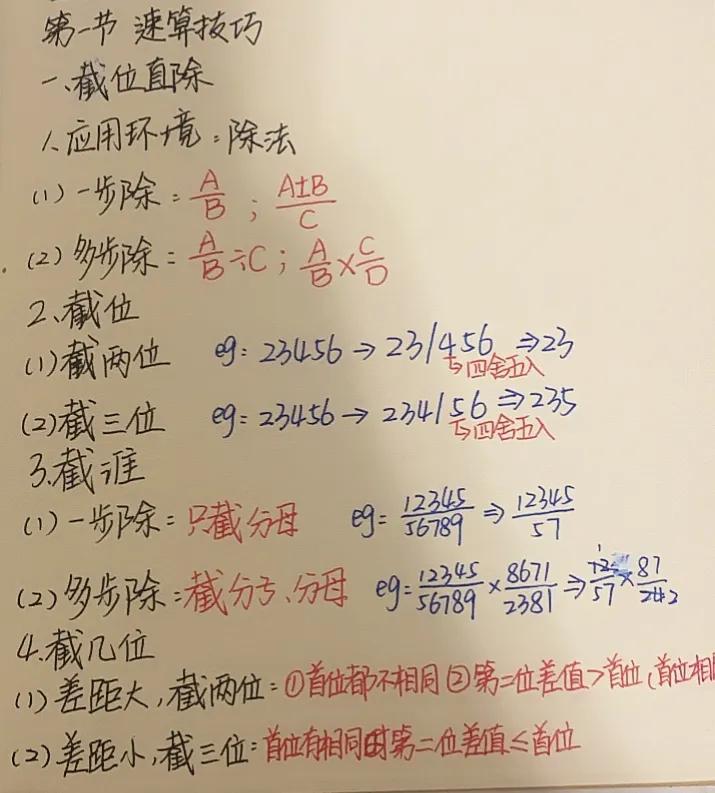 第一节 速算技巧
一、截位直除
1.应用环境：除法
(1)一步除：A/B；A±B/C
(2)多步除：A/B÷C；A/B×C/D
2.截位
(1)截两位 eg：23456→23/456⇒23
↳四舍五入
(2)截三位 eg：23456→234/56⇒235
↳四舍五入
3.截谁
(1)一步除：只截分母 eg：12345/56789⇒12345/57
(2)多步除：截分子、分母 eg：12345/56789×8671/2381⇒/57×87/
4.截几位
(1)差距大，截两位：①首位都不相同②第二位差值>首位(首位相
(2)差距小，截三位：首位有相同时第二位差值≤首位